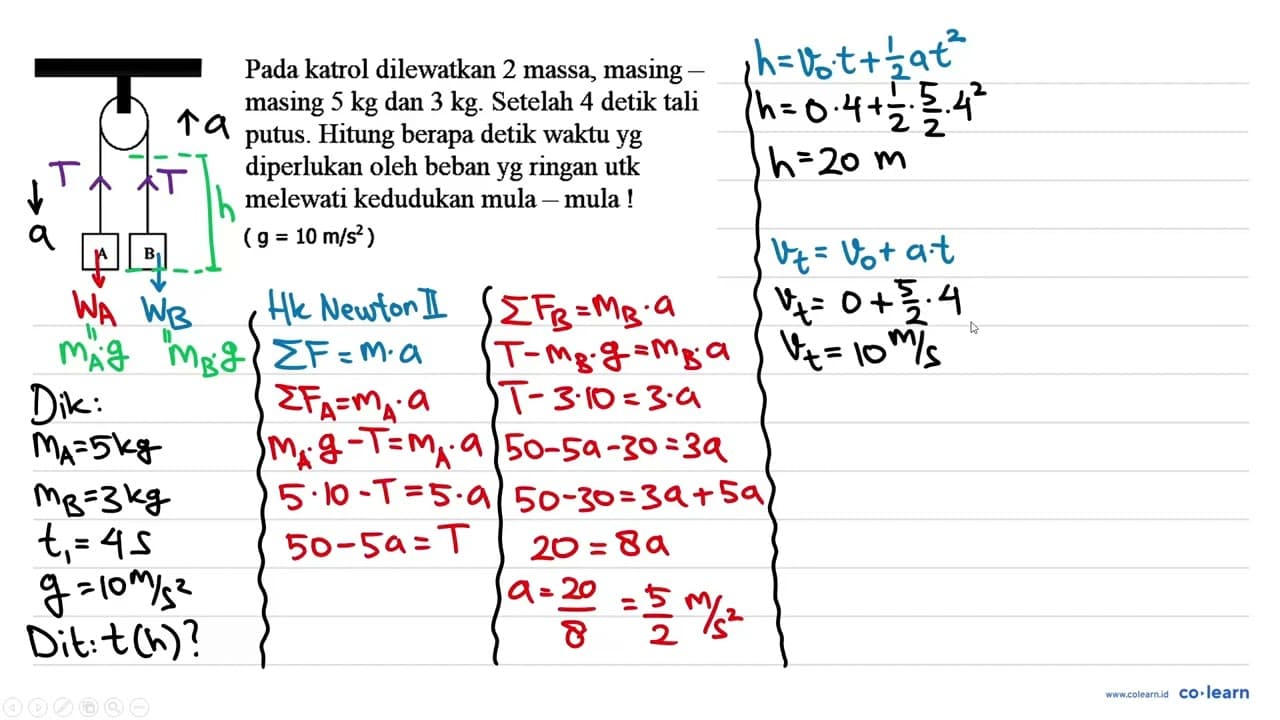 Pada katrol dilewatkan 2 massa, masing –
masing 5 kg dan 3 kg. Setelah 4 detik tali
putus. Hitung berapa detik waktu yg
diperlukan oleh beban yg ringan utk
melewati kedudukan mula – mula !
( g = 10 m/s² )
↑a
T
T
h
↓
a
A
B
W_A
W_B
"
"
m_A·g
m_B·g
Dik:
m_A=5kg
m_B=3kg
t₁=4s
g=10 m/s²
Dit: t(h)?
Hk Newton II
ΣF=m·a
ΣF_A=m_A·a
m_A·g-T=m_A·a
5·10-T=5·a
50-5a=T
ΣF_B=m_B·a
T-m_B·g=m_B·a
T-3·10=3·a
50-5a-30=3a
50-30=3a+5a
20=8a
a=20/8=5/2 m/s²
h=v₀·t+1/2at²
h=0·4+1/2·5/2·4²
h=20 m
v_t=v₀+a·t
v_t=0+5/2·4
v_t=10 m/s
www.colearn.id co·learn